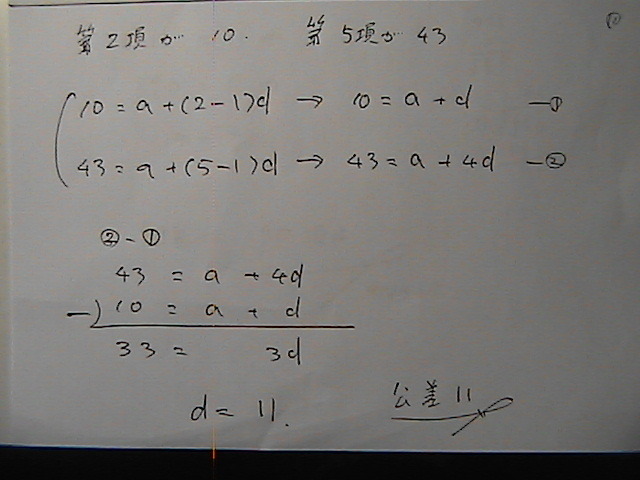 第2項が 10. 第5項が 43
10 = a + (2-1)d → 10 = a + d —①
43 = a + (5-1)d → 43 = a + 4d —②
②-①
43 = a + 4d
-) 10 = a + d
33 = 3d
d = 11.
公差 11